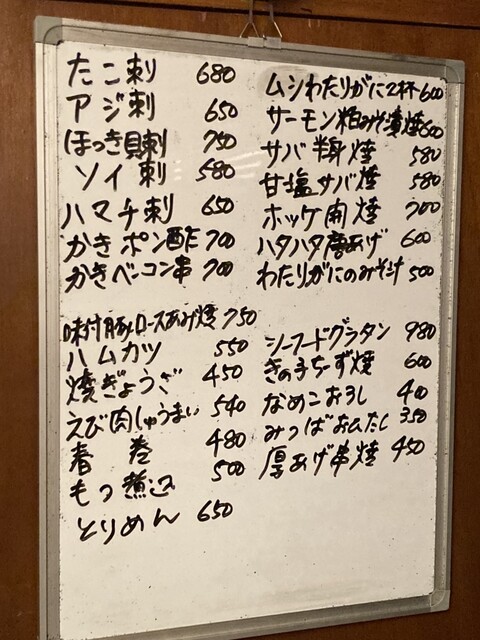 たこ刺 680
アジ刺 650
ほっき貝刺 750
ソイ刺 580
ハマチ刺 650
かきポン酢 700
かきベーコン串 700
味付豚ロースあみ焼 750
ハムカツ 550
焼ぎょうざ 450
えび肉しゅうまい 540
春巻 480
もつ煮込 500
とりめん 650
ムシわたりがに2杯 600
サーモン粕みそ漬焼 600
サバ半身焼 580
甘塩サバ焼 580
ホッケ開焼 700
ハタハタ唐あげ 600
わたりがにのみそ汁 500
シーフードグラタン 980
きの子ちーず焼 600
なめこおろし 400
みつばおひたし 350
厚あげ串焼 450